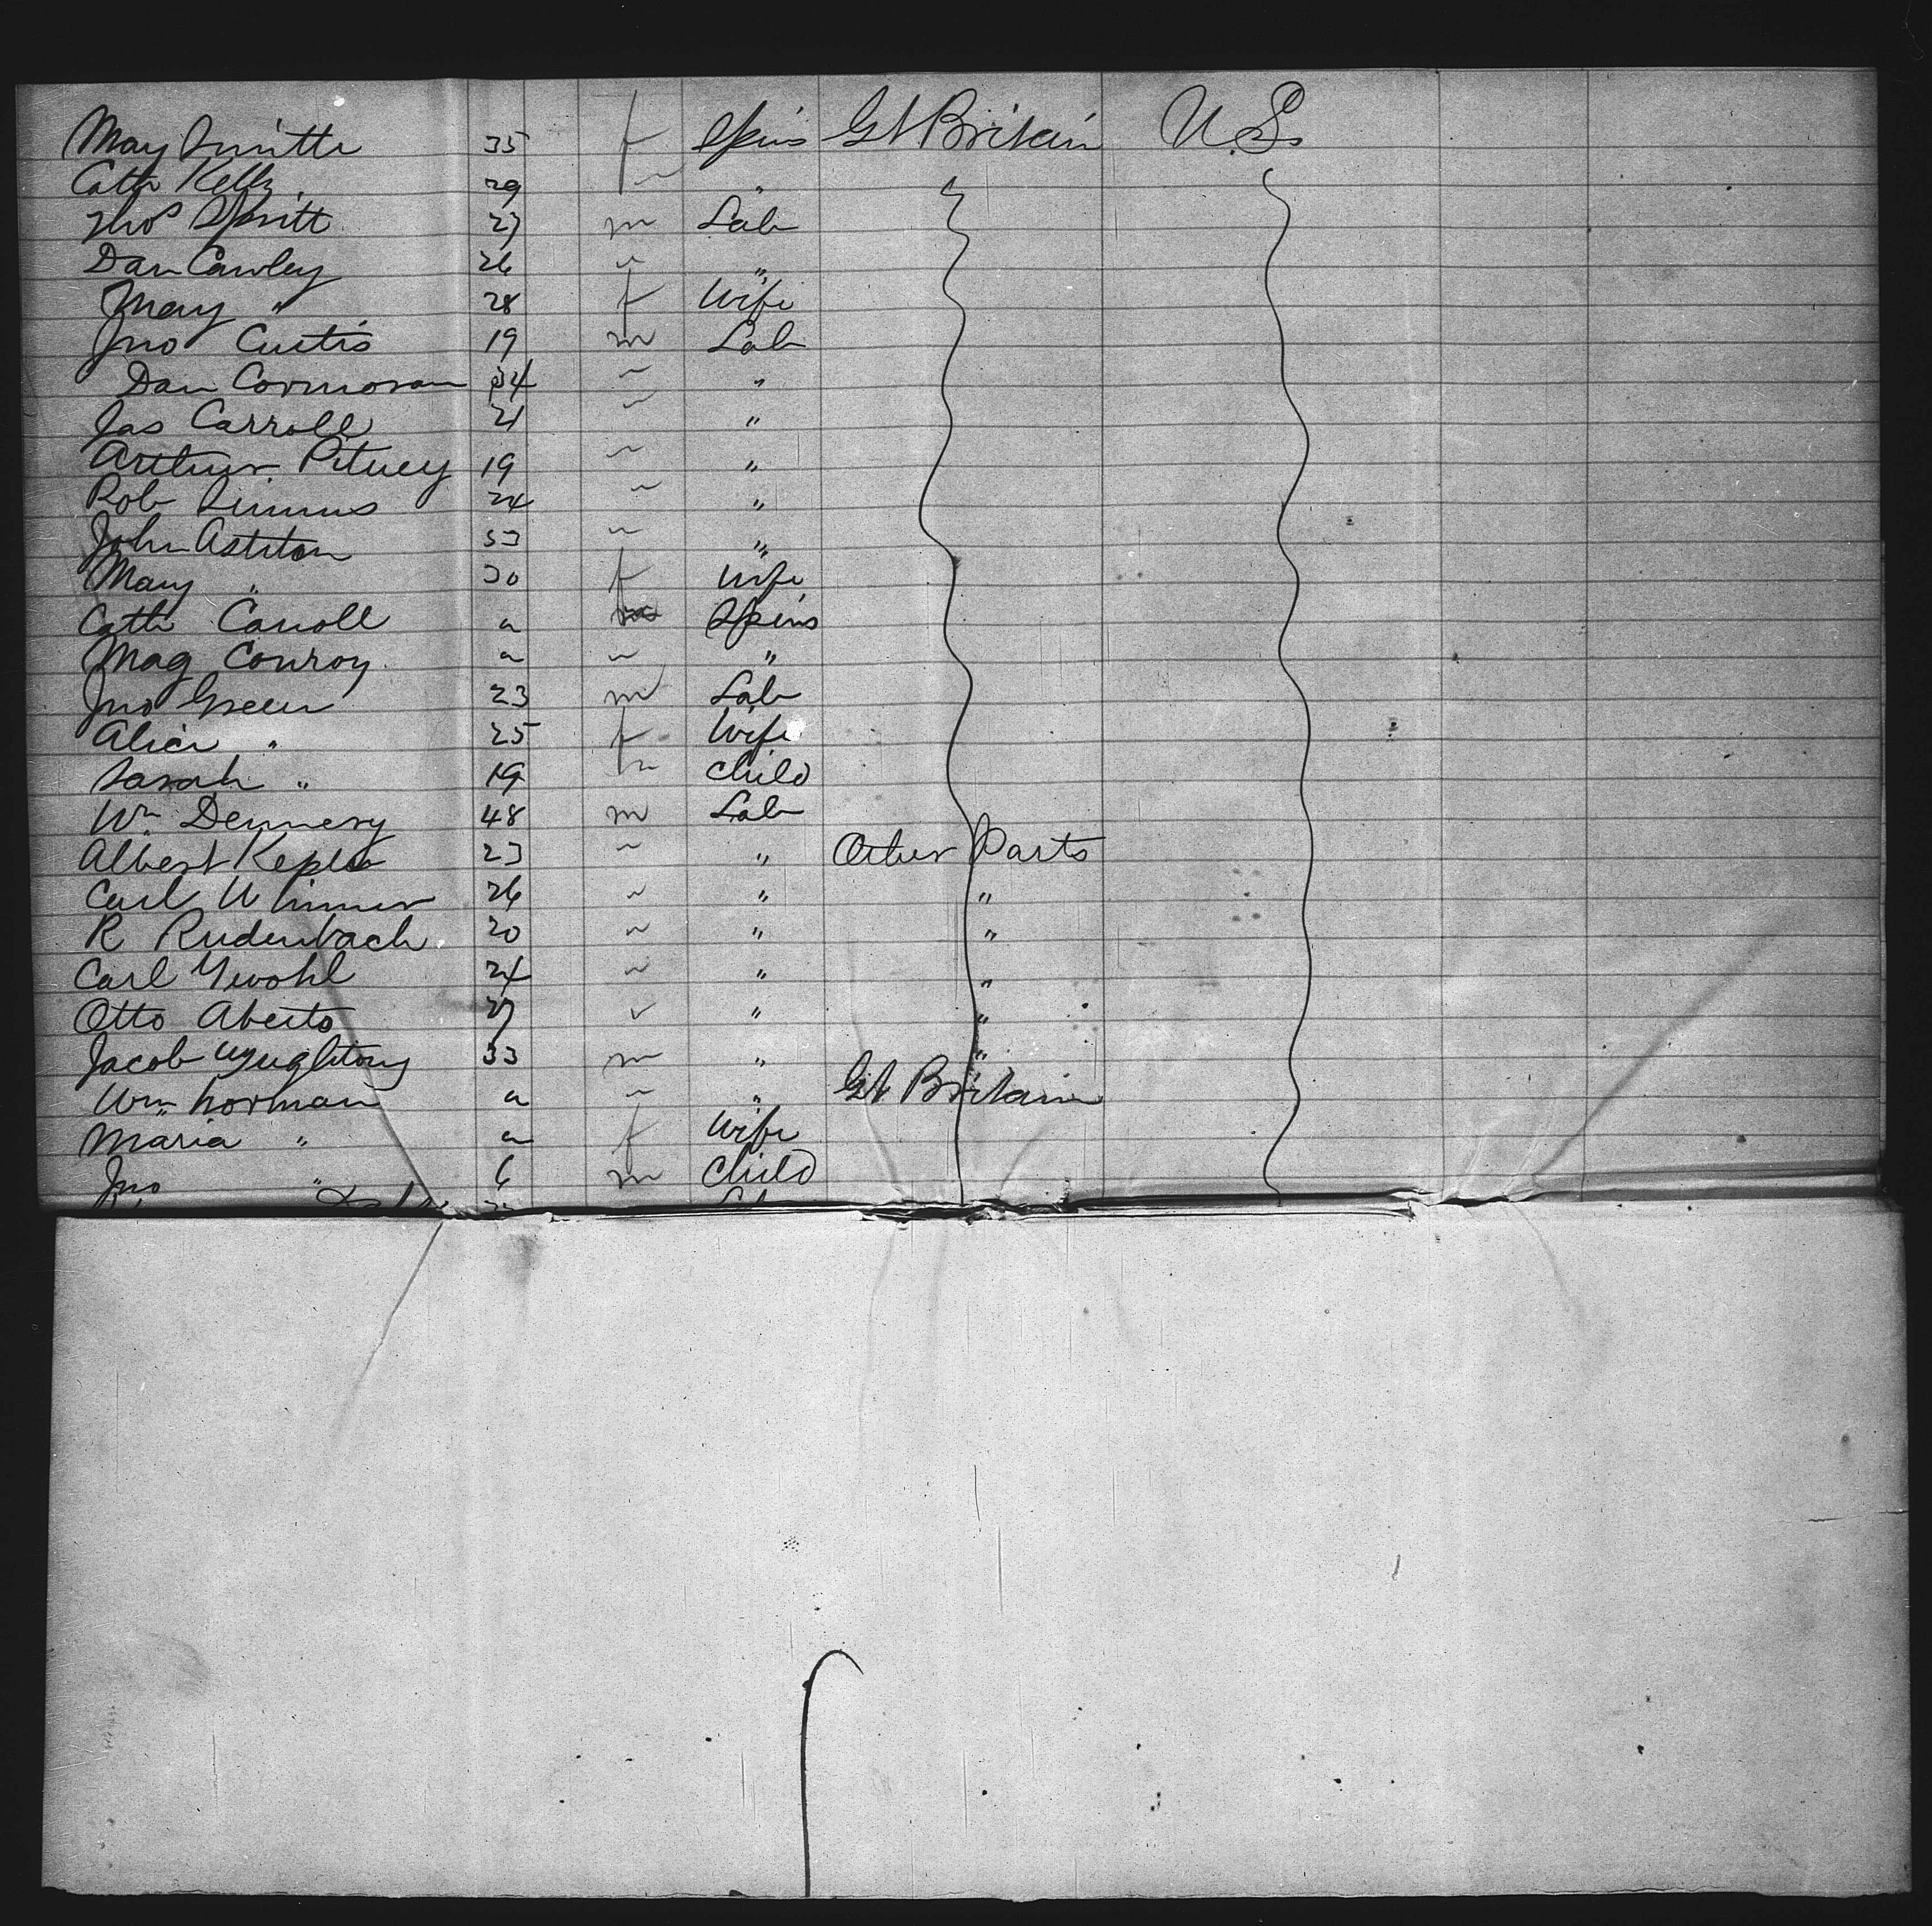 May Smith 35 f Spins Gt Britain U.S.
Cath Kelly 29 " "
Thos 27 m Lab
Dan Cawley 26 " "
Mary " 28 f Wife
Jno Curtis 19 m Lab
Dan 24 " "
Jas Carroll 21 " "
Arthur Pitney 19 " "
Rob Simms 24 " "
John Ashton 53 " "
Mary " 30 f Wife
Cath Carroll a Spins
Mag Conroy a " "
Jno Green 23 m Lab
Alice " 25 f Wife
Sarah " 19 " Child
Wm Dennery 48 m Lab
Albert Kepler 23 " " Other Parts
Carl 26 " " "
R Rudenbach 20 " " "
Carl 24 " " "
Otto Alberts 27 " " "
Jacob 33 m " "
Wm Norman a " " Gt Britain
Maria " a f Wife
Jno " 6 m Child